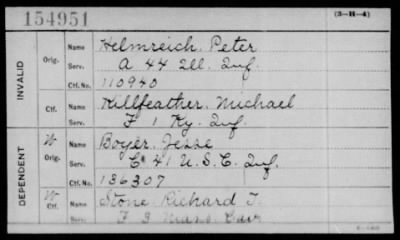 154951
(3-H-4)
INVALID
Orig.
Name Helmreich, Peter
Serv. A 44 Ill. Inf.
Ctf. No. 110940
Ctf.
Name Killfeather, Michael
Serv. F 1 Ky. Inf.
DEPENDENT
W
Orig.
Name Boyer, Jesse
Serv. C 41 U.S.C. Inf.
Ctf. No. 136307
W
Ctf.
Name Stone, Richard T.
Serv. F 3 Mass. Cav.